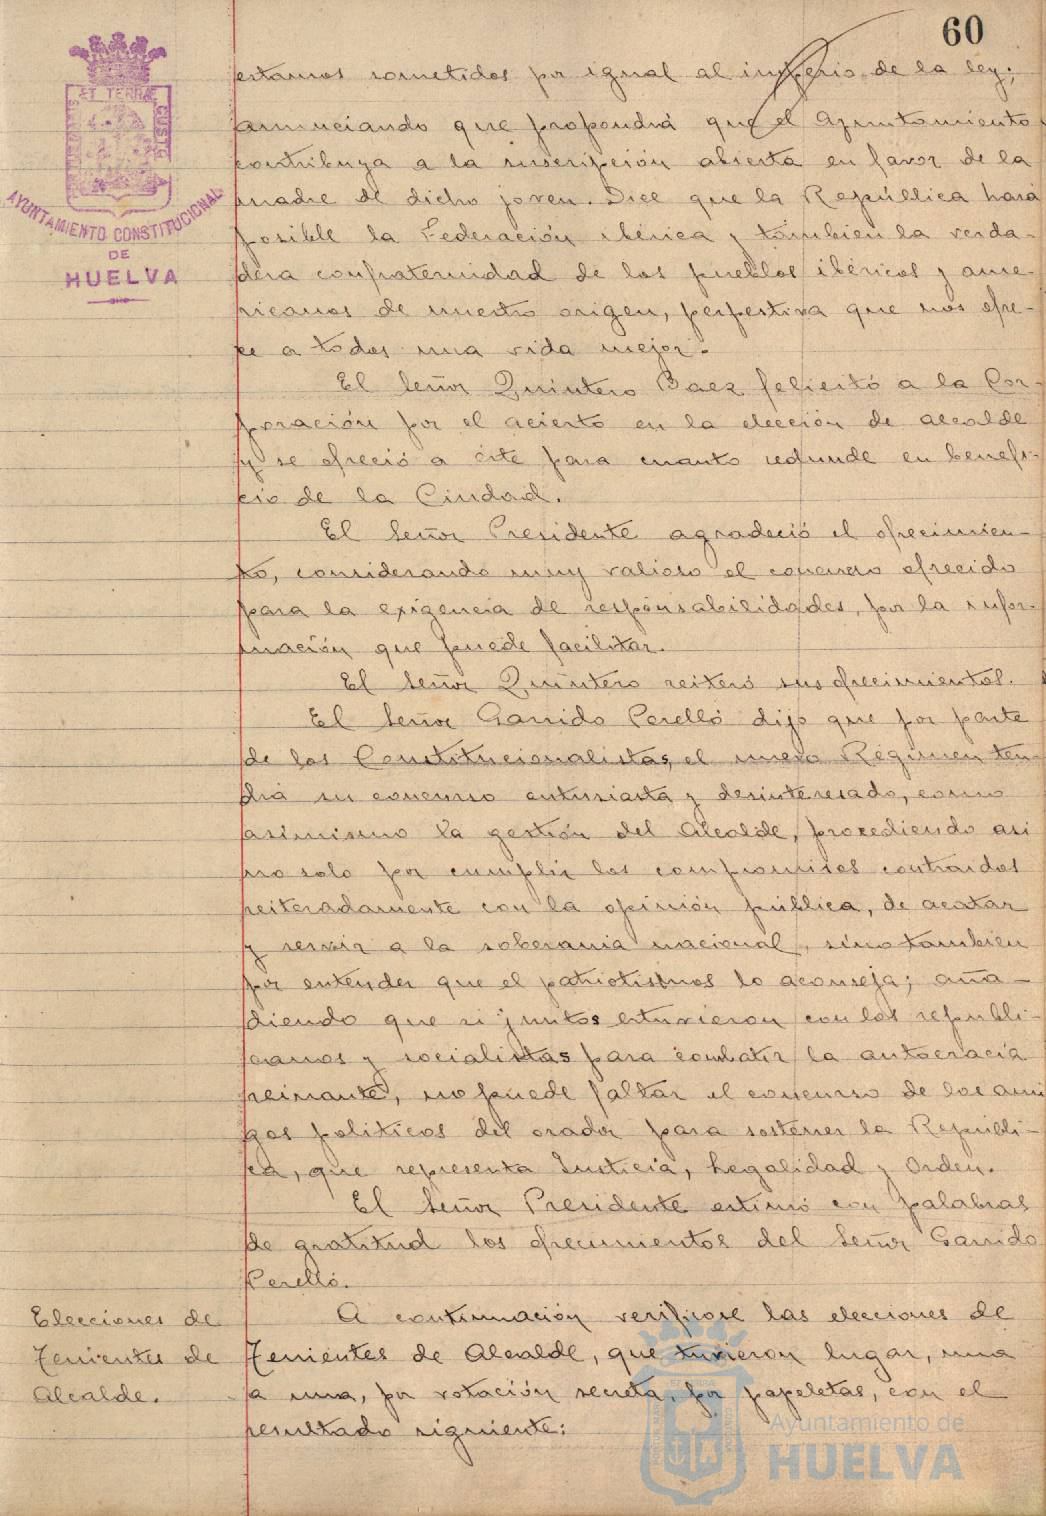 60
PORTUS MARIS ET TERRAE CUSTODIA
AYUNTAMIENTO CONSTITUCIONAL
DE
HUELVA
estamos sometidos por igual al imperio de la ley;
anunciando que propondrá que el Ayuntamiento
contribuya a la suscripción abierta en favor de la
madre de dicho joven. Dice que la República hará
posible la Federación ibérica y también la verda-
dera confraternidad de los pueblos ibéricos y ame-
ricanos de nuestro origen, perspectiva que nos ofre-
ce a todos una vida mejor.
El Señor Quintero Baez felicitó a la Cor-
poración por el acierto en la elección de alcalde
y se ofreció a éste para cuanto redunde en benefi-
cio de la Ciudad.
El Señor Presidente agradeció el ofrecimien-
to, considerando muy valioso el concurso ofrecido
para la exigencia de responsabilidades, por la infor-
mación que puede facilitar.
El Señor Quintero reiteró sus ofrecimientos.
El Señor Garrido Perelló dijo que por parte
de los Constitucionalistas, el nuevo Régimen ten-
drá su concurso entusiasta y desinteresado, como
asimismo la gestión del Alcalde, procediendo asi
no solo por cumplir los compromisos contraidos
reiteradamente con la opinión pública, de acatar
y servir a la soberania nacional, sino tambien
por entender que el patriotismos lo aconseja; aña-
diendo que si juntos estuvieron con los republi-
canos y socialistas para combatir la autocracia
reinante, no puede faltar el concurso de los ami
gos politicos del orador para sostener la Repúbli-
ca, que representa Justicia, Legalidad y Orden.
El Señor Presidente estimó con palabras
de gratitud los ofrecimientos del Señor Garrido
Perelló.
Elecciones de
Tenientes de
Alcalde.
A continuación verificose las elecciones de
Tenientes de Alcalde, que tuvieron lugar, una
a una, por votación secreta, por papeletas, con el
resultado siguiente:
Ayuntamiento de
HUELVA